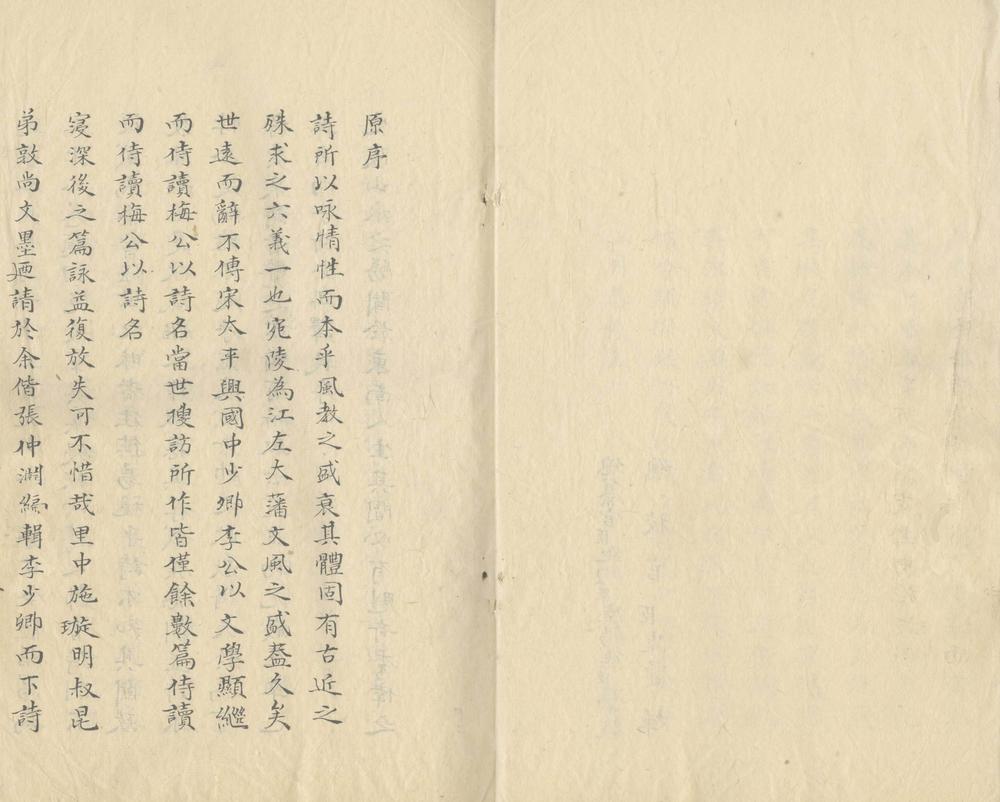 原序
詩所以咏情性而本乎風教之盛衰其體固有古近之
殊求之六義一也宛陵為江左大藩文風之盛葢久矣
世遠而辭不傳宋太平興國中少卿李公以文學顯繼
而侍讀梅公以詩名當世搜訪所作皆僅餘數篇侍讀
而侍讀梅公以詩名
寖深後之篇詠益復放失可不惜哉里中施璇明叔昆
弟敦尚文墨廼請於余偕張仲淵編輯李少卿而下詩